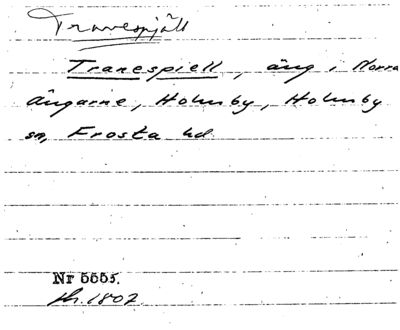 Tranespjäll
Tranespiell, äng i Norra
ängarne, Holmby, Holmby
sn, Frosta hd
Nr 5555.
1802